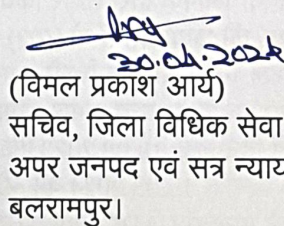 30.04.2024
(विमल प्रकाश आर्य)
सचिव, जिला विधिक सेवा
अपर जनपद एवं सत्र न्याय
बलरामपुर।